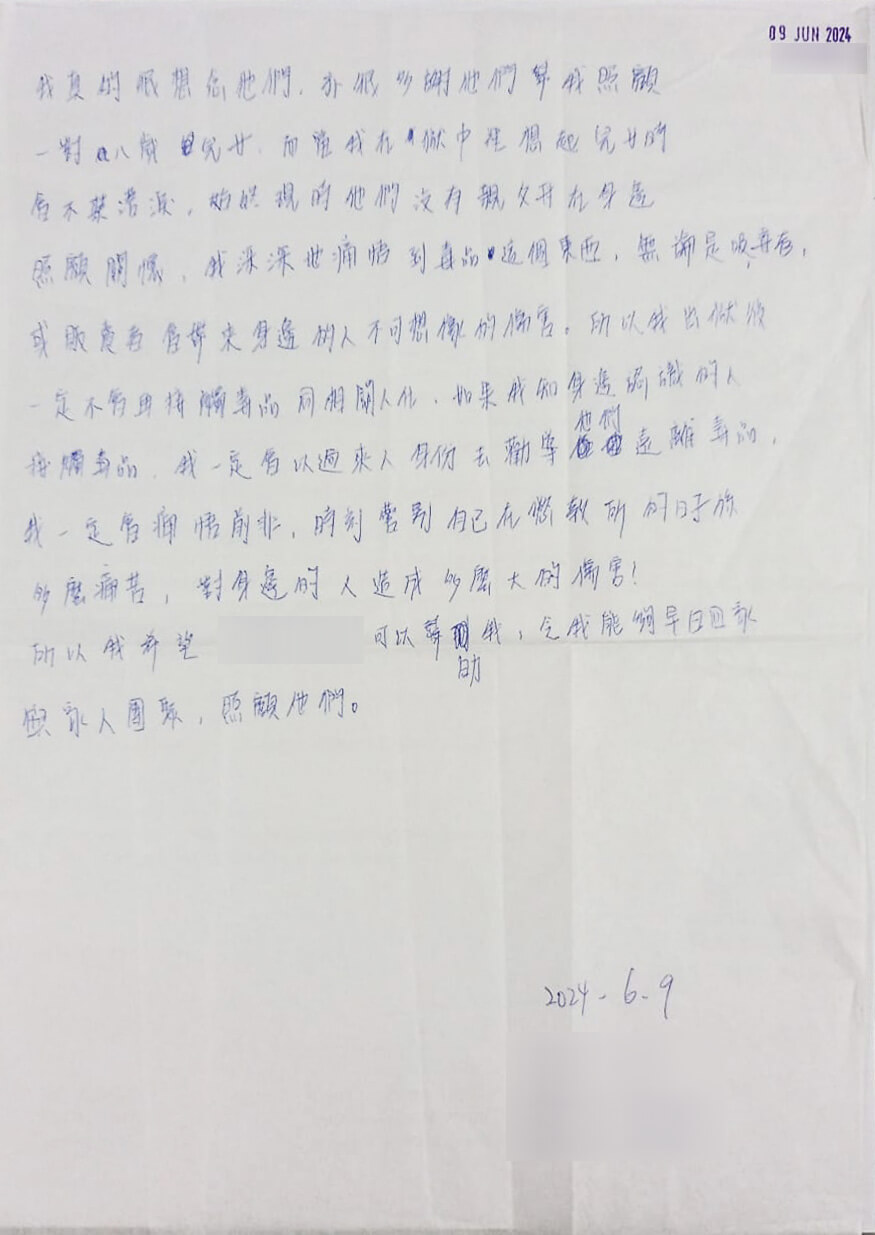 09 JUN 2024
我真的很想念他們，亦很多謝他們幫我照顧
一對八歲兒女，而當我在獄中在想起兒女時
會不禁落淚，始終現時他們沒有親父母在身邊
照顧關懷，我深深地痛悟到毒品這個東西，無論是吸毒者，
或販賣者會帶來身邊的人不可想像的傷害。所以我出獄後
一定不會再接觸毒品同相關人仕，如果我知身邊認識的人
接觸毒品，我一定會以過來人身份去勸導他們遠離毒品，
我一定會痛悟前非，時刻警剔自己在懲教所的日子你
多麼痛苦，對身邊的人造成多麼大的傷害！
所以我希望 可以幫助我，令我能夠早日回家
與家人團聚，照顧他們。
2024-6-9